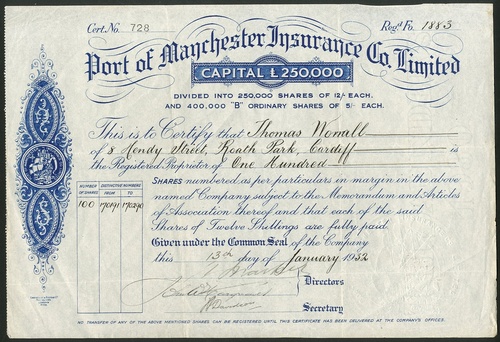 Cert. No. 728
Regd. Fo. 1883
Port of Manchester Insurance Co. Limited
CAPITAL £250,000
DIVIDED INTO 250,000 SHARES OF 12/- EACH.
AND 400,000 "B" ORDINARY SHARES OF 5/- EACH.
This is to Certify that Thomas Worrall
of 8 Hendy Street, Roath Park, Cardiff is
the Registered Proprietor of One Hundred
SHARES numbered as per particulars in margin in the above
named Company subject to the Memorandum and Articles
of Association thereof and that each of the said
Shares of Twelve Shillings are fully paid.
NUMBER OF SHARES
DISTINCTIVE NUMBERS
FROM TO
100 170191 170290
Given under the Common Seal of the Company
this 13th day of January 1932
Directors
Secretary
NO TRANSFER OF ANY OF THE ABOVE MENTIONED SHARES CAN BE REGISTERED UNTIL THIS CERTIFICATE HAS BEEN DELIVERED AT THE COMPANY'S OFFICES.